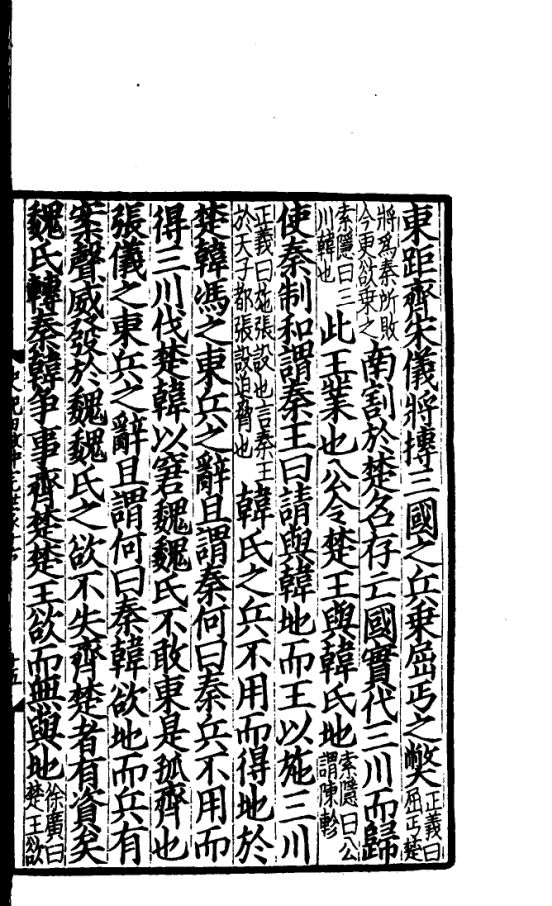 東距齊宋儀將摶三國之兵乗屈丐之弊正義曰屈丐楚
將為秦所敗今更欲乗之南割於楚名存亡國實伐三川而歸
索隱曰三川韓也此王業也公令楚王與韓氏地索隱曰公謂陳軫
使秦制和謂秦王曰請與韓地而王以施三川
正義曰施張設也言秦王於天子都張設迫脅也韓氏之兵不用而得地於
楚韓馮之東兵之辭且謂秦何曰秦兵不用而
得三川伐楚韓以窘魏魏氏不敢東是孤齊也
張儀之東兵之辭且謂何曰秦韓欲地而兵有
案聲威發於魏魏氏之欲不失齊楚者有資矣
魏氏轉秦韓爭事齊楚楚王欲而無與地徐廣曰楚王欲